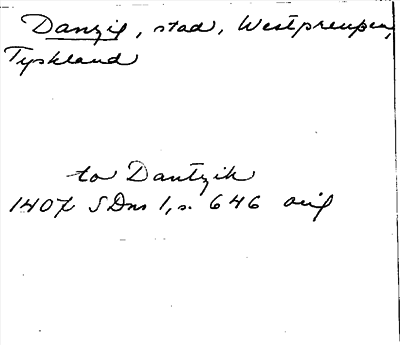 Danzig, stad, Westpreussen,
Tyskland
to Dantzik
1407 SDns 1, s. 646 orig